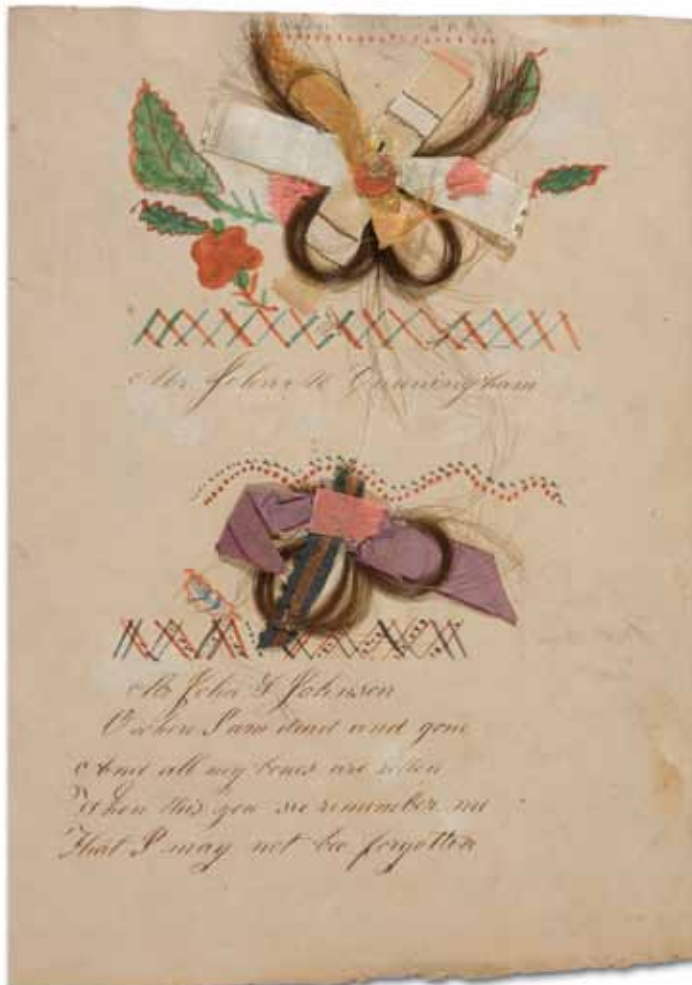 Mr John R Cunningham
Mr John G Johnson
O when I am dead and gone
And all my bones are rotten
When this you see remember me
That I may not bee forgotten